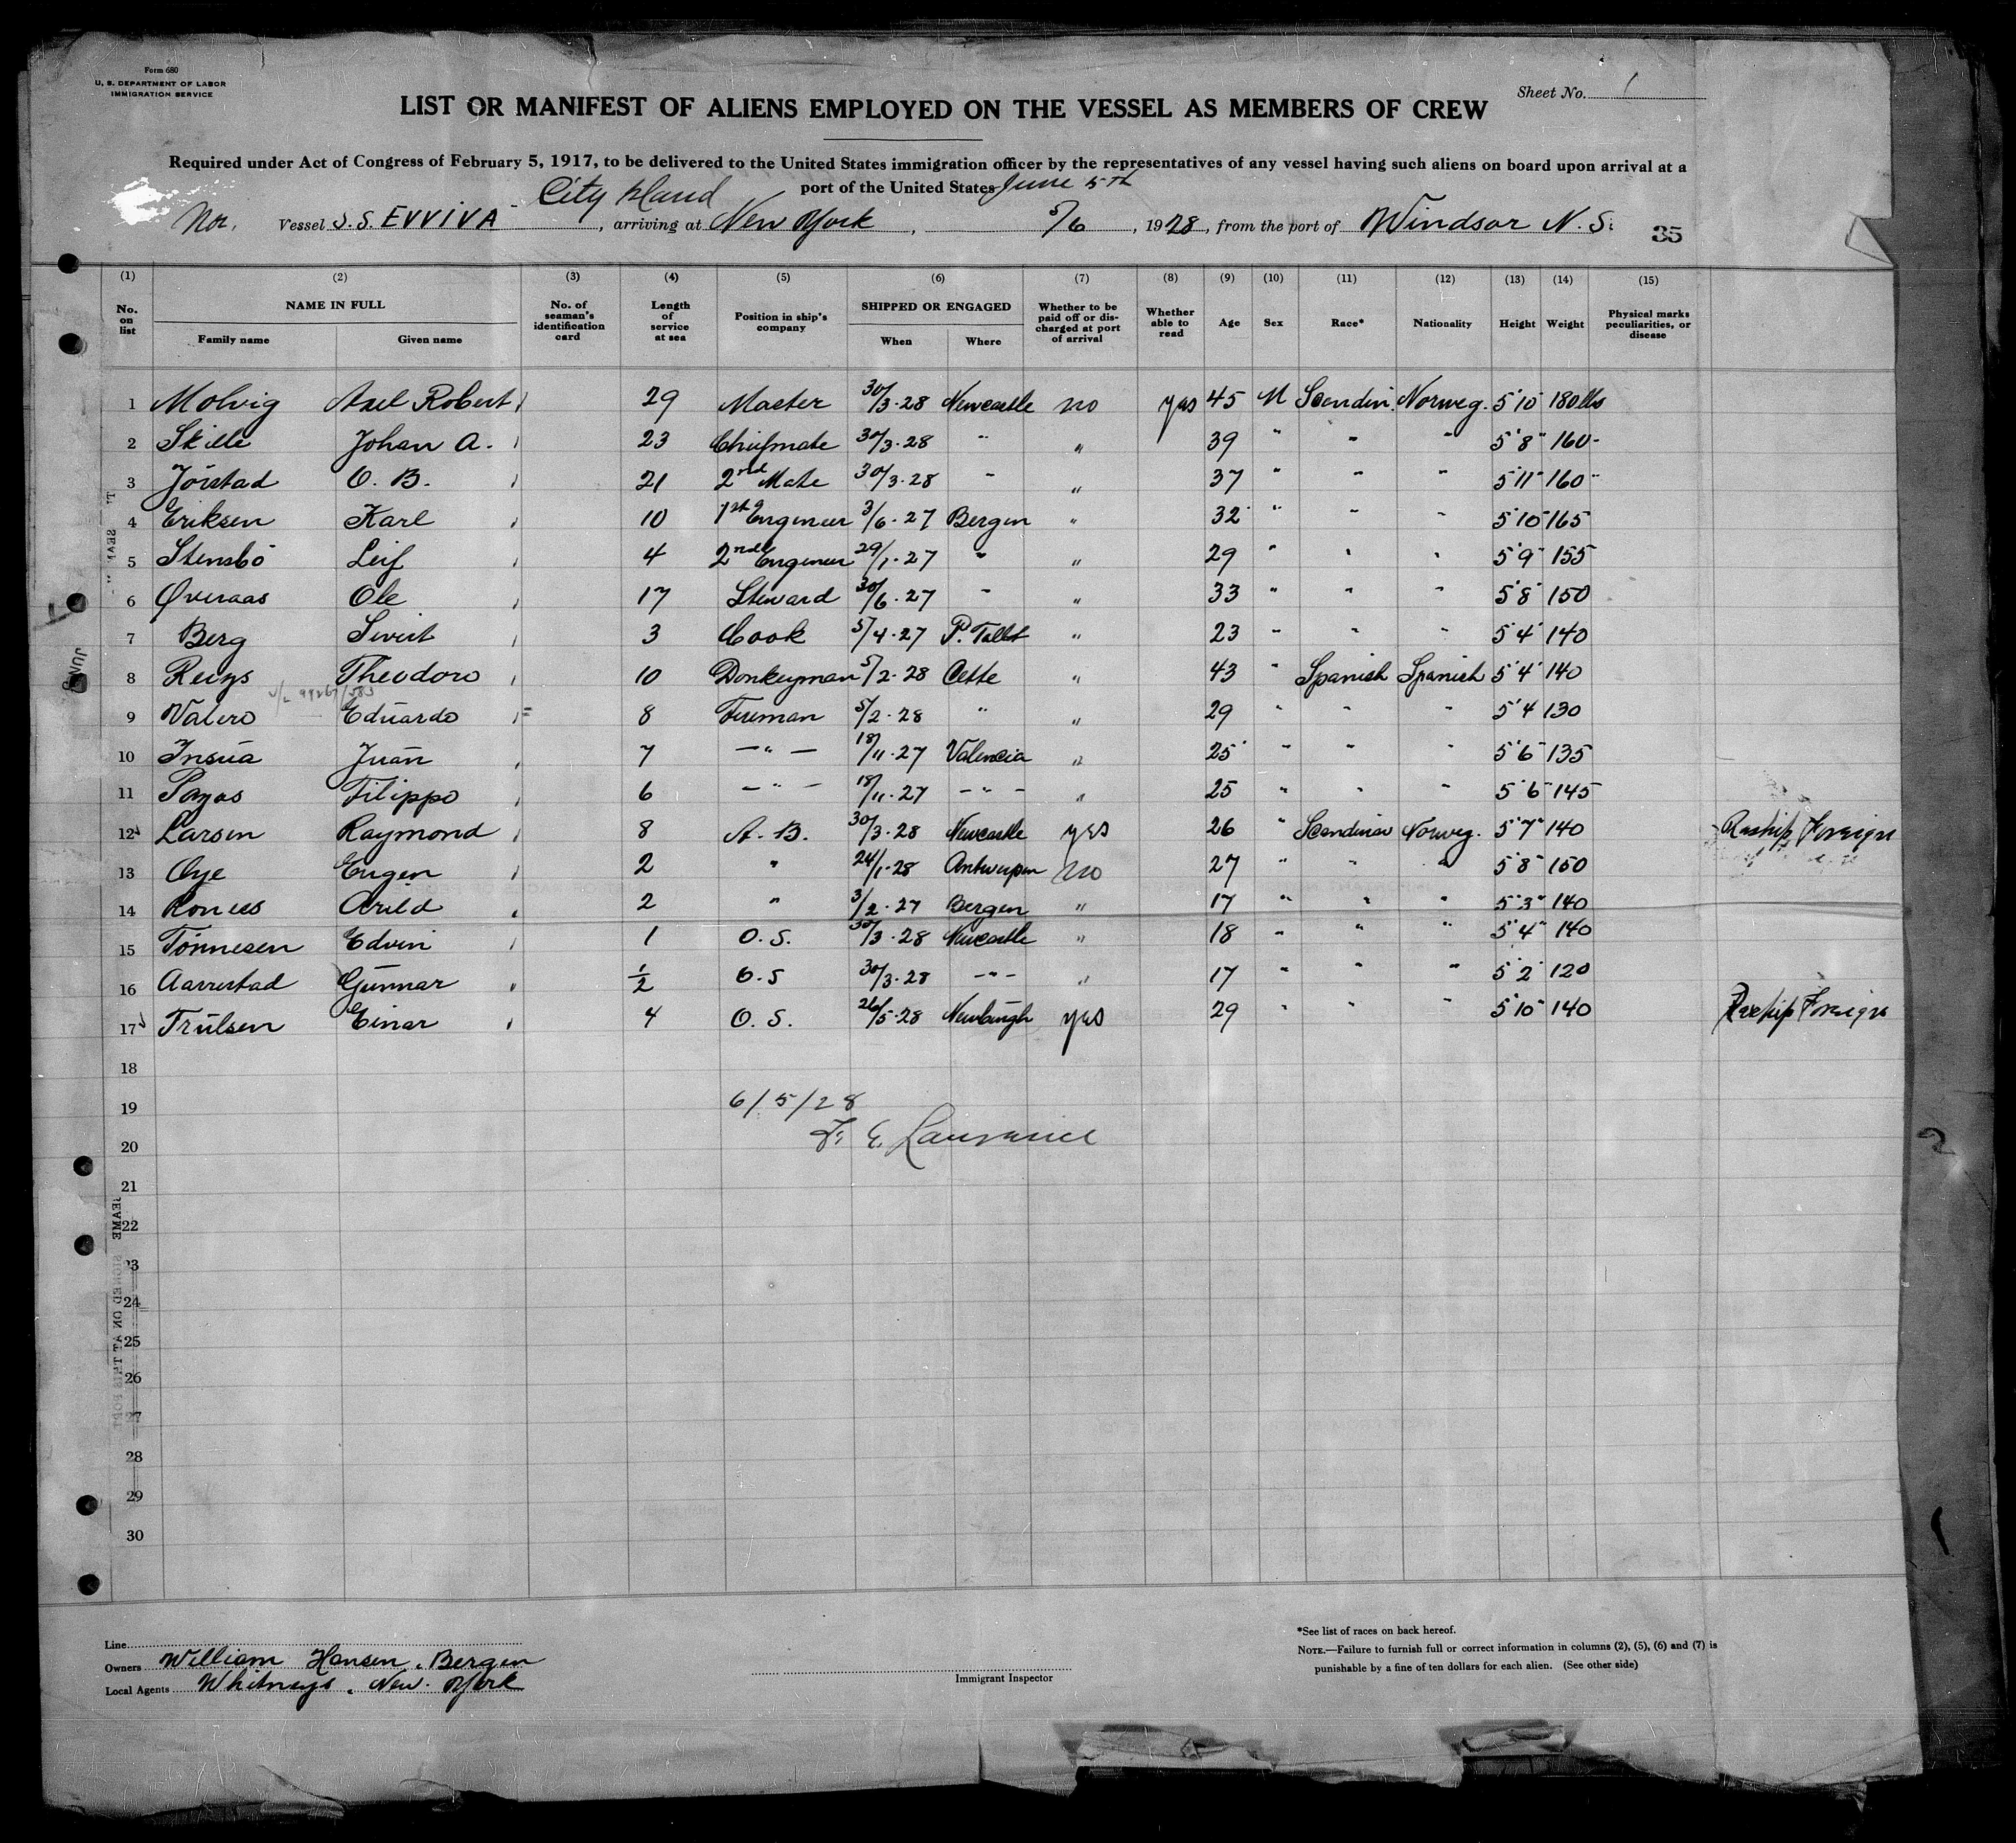 Form 680
U. S. DEPARTMENT OF LABOR
IMMIGRATION SERVICE
Sheet No. 1
LIST OR MANIFEST OF ALIENS EMPLOYED ON THE VESSEL AS MEMBERS OF CREW
Required under Act of Congress of February 5, 1917, to be delivered to the United States immigration officer by the representatives of any vessel having such aliens on board upon arrival at a
port of the United States
City Island June 5th
Nor. Vessel S.S. EVVIVA, arriving at New York, 5/6, 1928, from the port of Windsor N.S. 35
(1) (2) (3) (4) (5) (6) (7) (8) (9) (10) (11) (12) (13) (14) (15)
No. on list NAME IN FULL Family name Given name No. of seaman's identification card Length of service at sea Position in ship's company SHIPPED OR ENGAGED When Where Whether to be paid off or discharged at port of arrival Whether able to read Age Sex Race* Nationality Height Weight Physical marks peculiarities, or disease
1 Molvig Axel Robert 29 Master 30/3-28 Newcastle no yes 45 M Scandin. Norweg. 5'10" 180 lbs
2 Skille Johan A. 23 Chiefmate 30/3-28 " " 39 " " " 5'8" 160-
3 Jörstad O. B. 21 2nd Mate 30/3-28 " " 37 " " " 5'11" 160"
4 Eriksen Karl 10 1st Engineer 3/6-27 Bergen " 32 " " " 5'10" 165
5 Stensbö Leif 4 2nd Engineer 29/1-27 " " 29 " " " 5'9" 155
6 Øveraas Ole 17 Steward 30/6-27 " " 33 " " " 5'8" 150
7 Berg Sivert 3 Cook 5/4-27 P. Talbt " 23 " " " 5'4" 140
8 Reuys Theodoro 10 Donkeyman 5/2-28 Cette " 43 " Spanish Spanish 5'4" 140
9 Valero Eduardo 8 Fireman 5/2-28 " " 29 " " " 5'4 130
10 Insua Juan 7 — " — 18/11-27 Valencia " 25 " " " 5'6" 135
11 Payas Filippo 6 — " — 18/11-27 — " — " 25 " " " 5'6" 145
12 Larsen Raymond 8 A. B. 30/3-28 Newcastle yes 26 " Scandinav Norweg. 5'7" 140 Reship Foreign
13 Oye Eugen 2 " 24/1-28 Antwerpen no 27 " " " 5'8" 150
14 Ronees Arild 2 " 3/2-27 Bergen " 17 " " " 5'3" 140
15 Tönnesen Edvin 1 O. S. 30/3-28 Newcastle " 18 " " " 5'4" 140
16 Aarrestad Gunnar 1/2 O. S 30/3-28 — " — " 17 " " " 5'2" 120
17 Trulsen Einar 4 O. S. 26/5-28 Newburgh yes 29 " " " 5'10" 140 Reship Foreign
18
19 6/5/28
20 F. E. Lawrence
21
22
23
24
25
26
27
28
29
30
Line
Owners William Hansen, Bergen
Local Agents Whitneys, New York
Immigrant Inspector
*See list of races on back hereof.
NOTE.—Failure to furnish full or correct information in columns (2), (5), (6) and (7) is
punishable by a fine of ten dollars for each alien. (See other side)
2
1